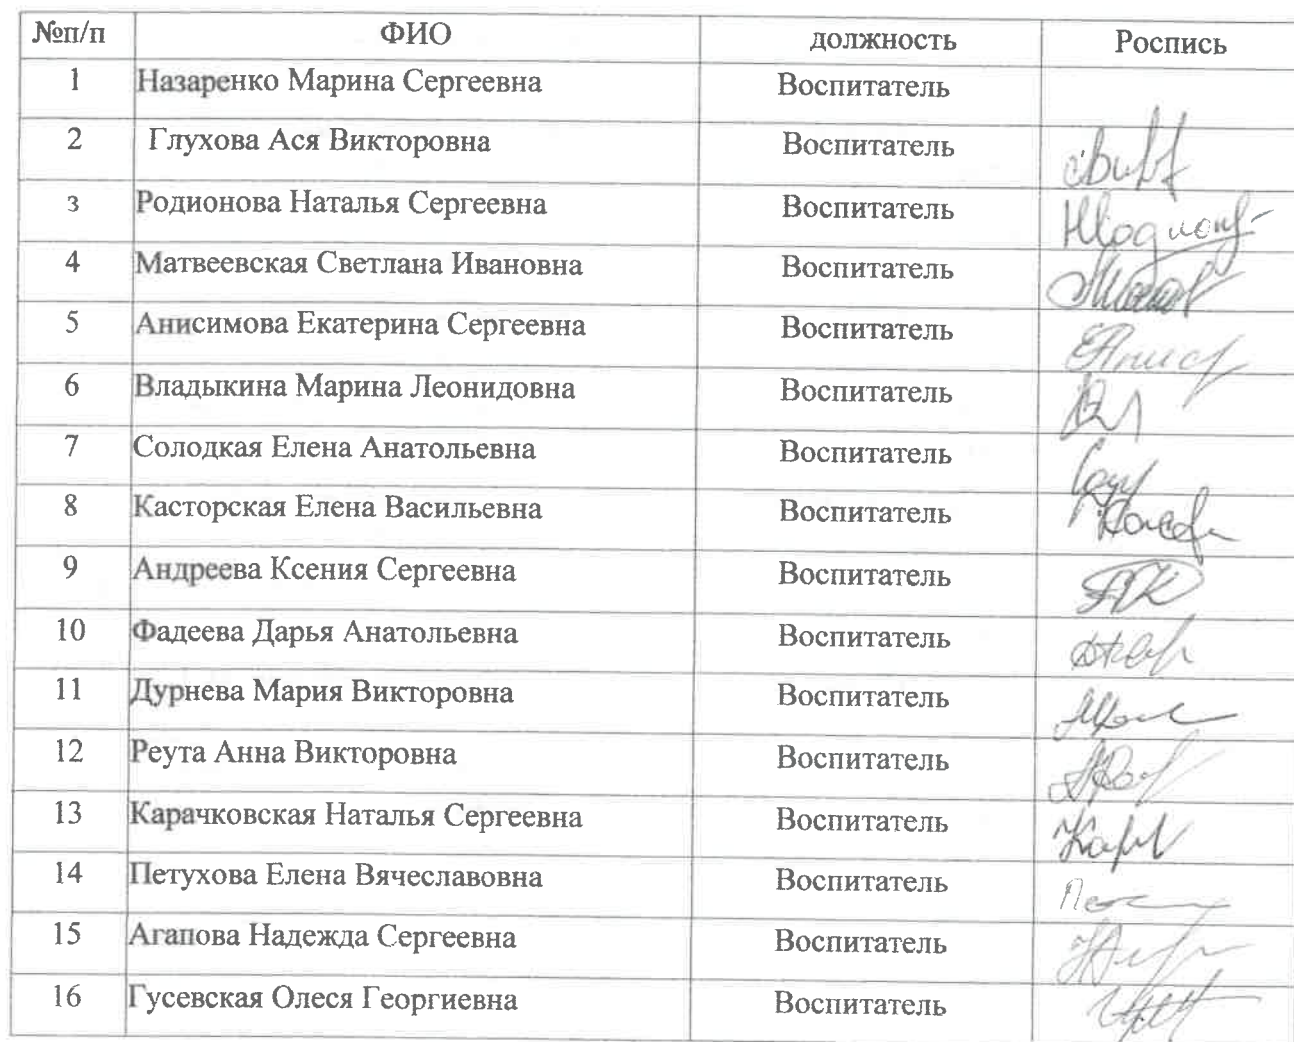 №п/п ФИО должность Роспись
1 Назаренко Марина Сергеевна Воспитатель
2 Глухова Ася Викторовна Воспитатель
3 Родионова Наталья Сергеевна Воспитатель
4 Матвеевская Светлана Ивановна Воспитатель
5 Анисимова Екатерина Сергеевна Воспитатель
6 Владыкина Марина Леонидовна Воспитатель
7 Солодкая Елена Анатольевна Воспитатель
8 Касторская Елена Васильевна Воспитатель
9 Андреева Ксения Сергеевна Воспитатель
10 Фадеева Дарья Анатольевна Воспитатель
11 Дурнева Мария Викторовна Воспитатель
12 Реута Анна Викторовна Воспитатель
13 Карачковская Наталья Сергеевна Воспитатель
14 Петухова Елена Вячеславовна Воспитатель
15 Агапова Надежда Сергеевна Воспитатель
16 Гусевская Олеся Георгиевна Воспитатель